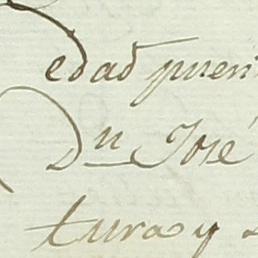 edad puer
Dn José
tura y